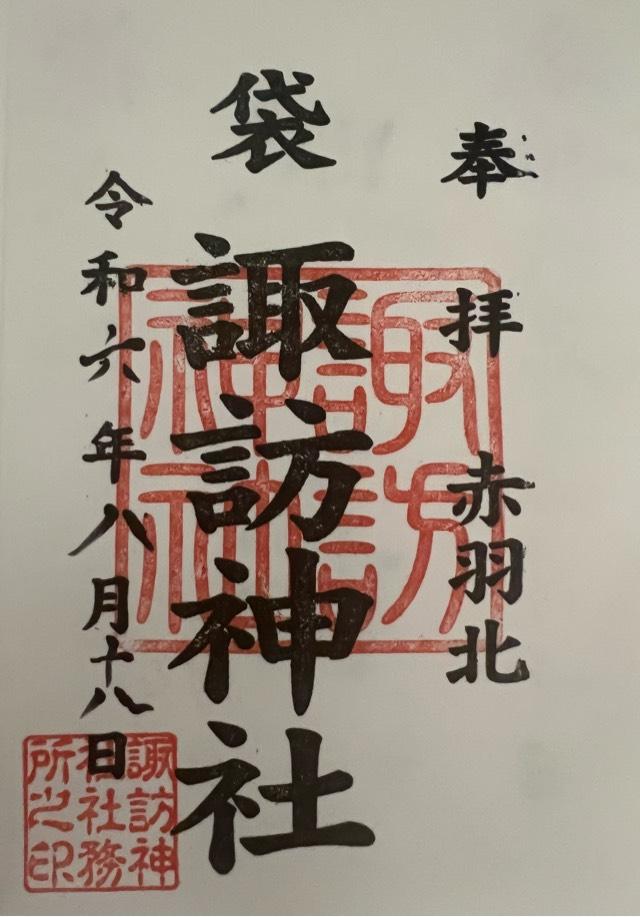 奉拝 赤羽北
袋 諏訪神社
令和六年八月十八日
諏訪神社
諏訪神社社務所之印